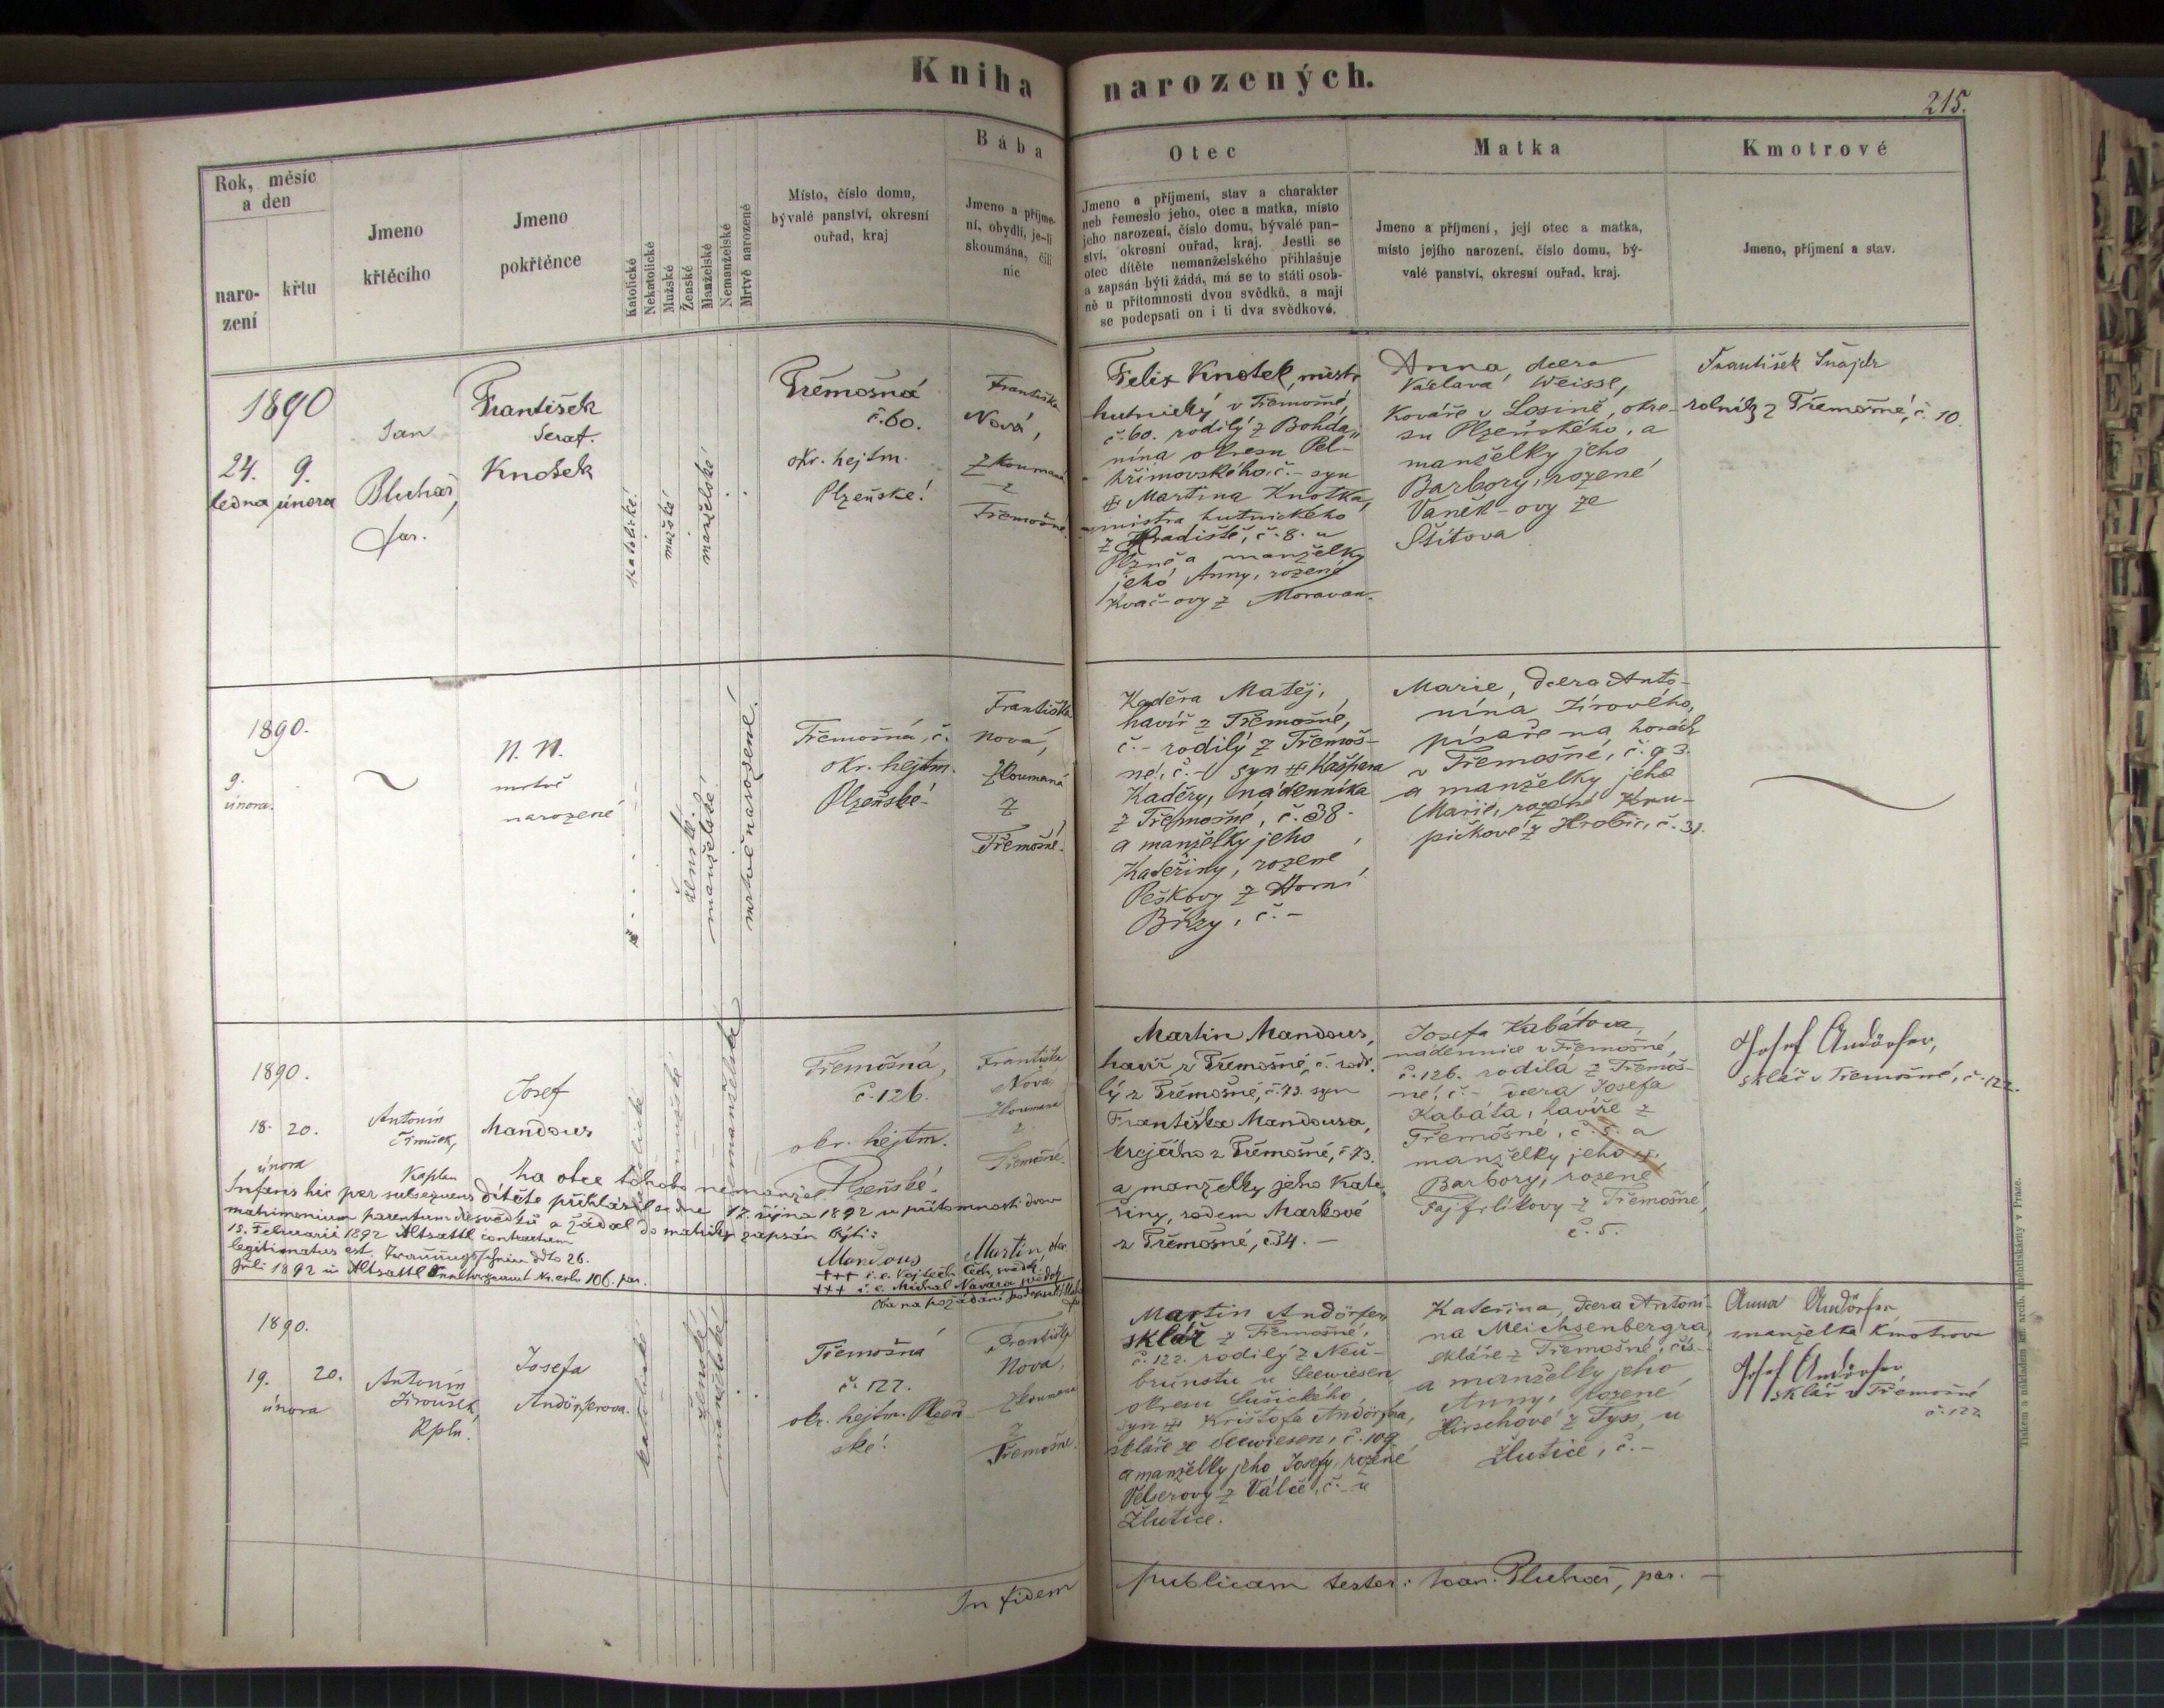 Kniha narozených.
215.
Rok, měsíc
a den
naro-
zení
křtu
Jmeno
křtěcího
Jmeno
pokřtěnce
Katolické
Nekatolické
Mužské
Ženské
Manželské
Nemanželské
Mrtvě narozené
Místo, číslo domu,
bývalé panství, okresní
ouřad, kraj
Bába
Jmeno a příjme-
ní, obydlí, je-li
skoumána, čili
nic
Otec
Jmeno a příjmení, stav a charakter
neb řemeslo jeho, otec a matka, místo
jeho narození, číslo domu, bývalé pan-
ství, okresní ouřad, kraj. Jestli se
otec dítěte nemanželského přihlašuje
a zapsán býti žádá, má se to státi osob-
ně u přítomnosti dvou svědků, a mají
se podepsati on i ti dva svědkové.
Matka
Jmeno a příjmení, její otec a matka,
místo jejího narození, číslo domu, bý-
valé panství, okresní ouřad, kraj.
Kmotrové
Jmeno, příjmení a stav.
1890
24. 9.
ledna února
Jan
Pluhař,
far.
František
Seraf.
Knotek
katolické
mužské
manželské
Třemošná
č. 60.
okr. hejtm.
Plzeňské.
Františka
Nová,
zkoumaná
z
Třemošné.
Felix Knotek, mistr
hutnický v Třemošné,
č. 60. rodilý z Bohda-
nína okresu Pel-
hřimovského, č. – syn
Martina Knotka,
mistra hutnického
z Hradiště, č. 8. u
Plzně a manželky
jeho Anny, rozené
Kvač-ovy z Moravan.
Anna, dcera
Václava Weisse,
Kováře v Losině, okre-
su Plzeňského, a
manželky jeho
Barbory, rozené
Vaněk-ovy ze
Štítova
František Šnajdr
rolník z Třemošné, č. 10.
1890.
9.
února.
N. N.
mrtvě
narozené
ženské.
manželské.
mrtvě narozené.
Třemošná, č.
okr. hejtm.
Plzeňské.
Františka
Nová,
zkoumaná
z
Třemošné.
Kaděra Matěj,
havíř z Třemošné,
č. – rodilý z Třemoš-
né, č. – syn Kašpara
Kaděry, nádenníka
z Třemošné, č. 38.
a manželky jeho
Kateřiny, rozené
Peškovy z Horní
Břízy, č. –
Marie, dcera Anto-
nína Jírového,
písaře na horách
v Třemošné, č. 93.
a manželky jeho
Marie, rozené Kru-
pičkové z Hrobčic, č. 31.
1890.
18. 20.
února
Antonín
Jiroušek,
Kaplan
Josef
Mandous
katolické
mužské
nemanželské
Třemošná,
č. 126.
okr. hejtm.
Plzeňské.
Františka
Nová
zkoumaná
z
Třemošné.
Martin Mandous,
havíř z Třemošné, č. rodi-
lý z Třemošné, č. 73. syn
Františka Mandousa,
krejčího z Třemošné, č. 73.
a manželky jeho Kate-
řiny, rodem Markové
z Třemošné, č. 34. –
Josefa Kabátova,
nádennice v Třemošné,
č. 126. rodilá z Třemoš-
né, č. – dcera Josefa
Kabáta, havíře z
Třemošné, č. 5. a
manželky jeho
Barbory, rozené
Fajfrlíkovy z Třemošné,
č. 5.
Josef Andörfer,
sklář v Třemošné, č. 122.
Za otce tohoto nemanžel.
dítěte přihlásil se dne 17. října 1892 u přítomnosti dvou
svědků a žádal do matriky zapsán býti:
Infans hic per subsequens
matrimonium parentum die
15. Februarii 1892 Altsattl contractum
legitimatus est. Trauungsschein ddto 26.
Juli 1892 in Altsattl 106. par.
Mandous Martin, otec
+++ i. e. Vojtěch Čech, svědek
+++ i. e. Michal Navara svědek
Oba na požádání podepsal
1890.
19. 20.
února
Antonín
Jiroušek,
Kpln.
Josefa
Andörferova.
katolické
ženské
manželské
Třemošná
č. 122.
okr. hejtm. Plzeň-
ské.
Františka
Nová,
zkoumaná
z
Třemošné.
Martin Andörfer
sklář z Třemošné,
č. 122. rodilý z Neu-
brunstu u Seewiesen
okresu Sušického,
syn Krištofa Andörfra,
skláře ze Seewiesen, č. 109
a manželky jeho Josefy, rozené
Velserovy z Valče, č. – u
Žlutice.
Kateřina, dcera Antoní-
na Meichsenbergra,
skláře z Třemošné, čís. –
a manželky jeho
Anny, rozené
Hirschové z Tyss, u
Žlutice, č. –
Anna Andörfer
manželka kmotrova
Josef Andörfer,
sklář v Třemošné
č. 122
In fidem publicam testor: Joan. Pluhař, par. –
Tiskem a nákladem kn. arcib. knihtiskárny v Praze.